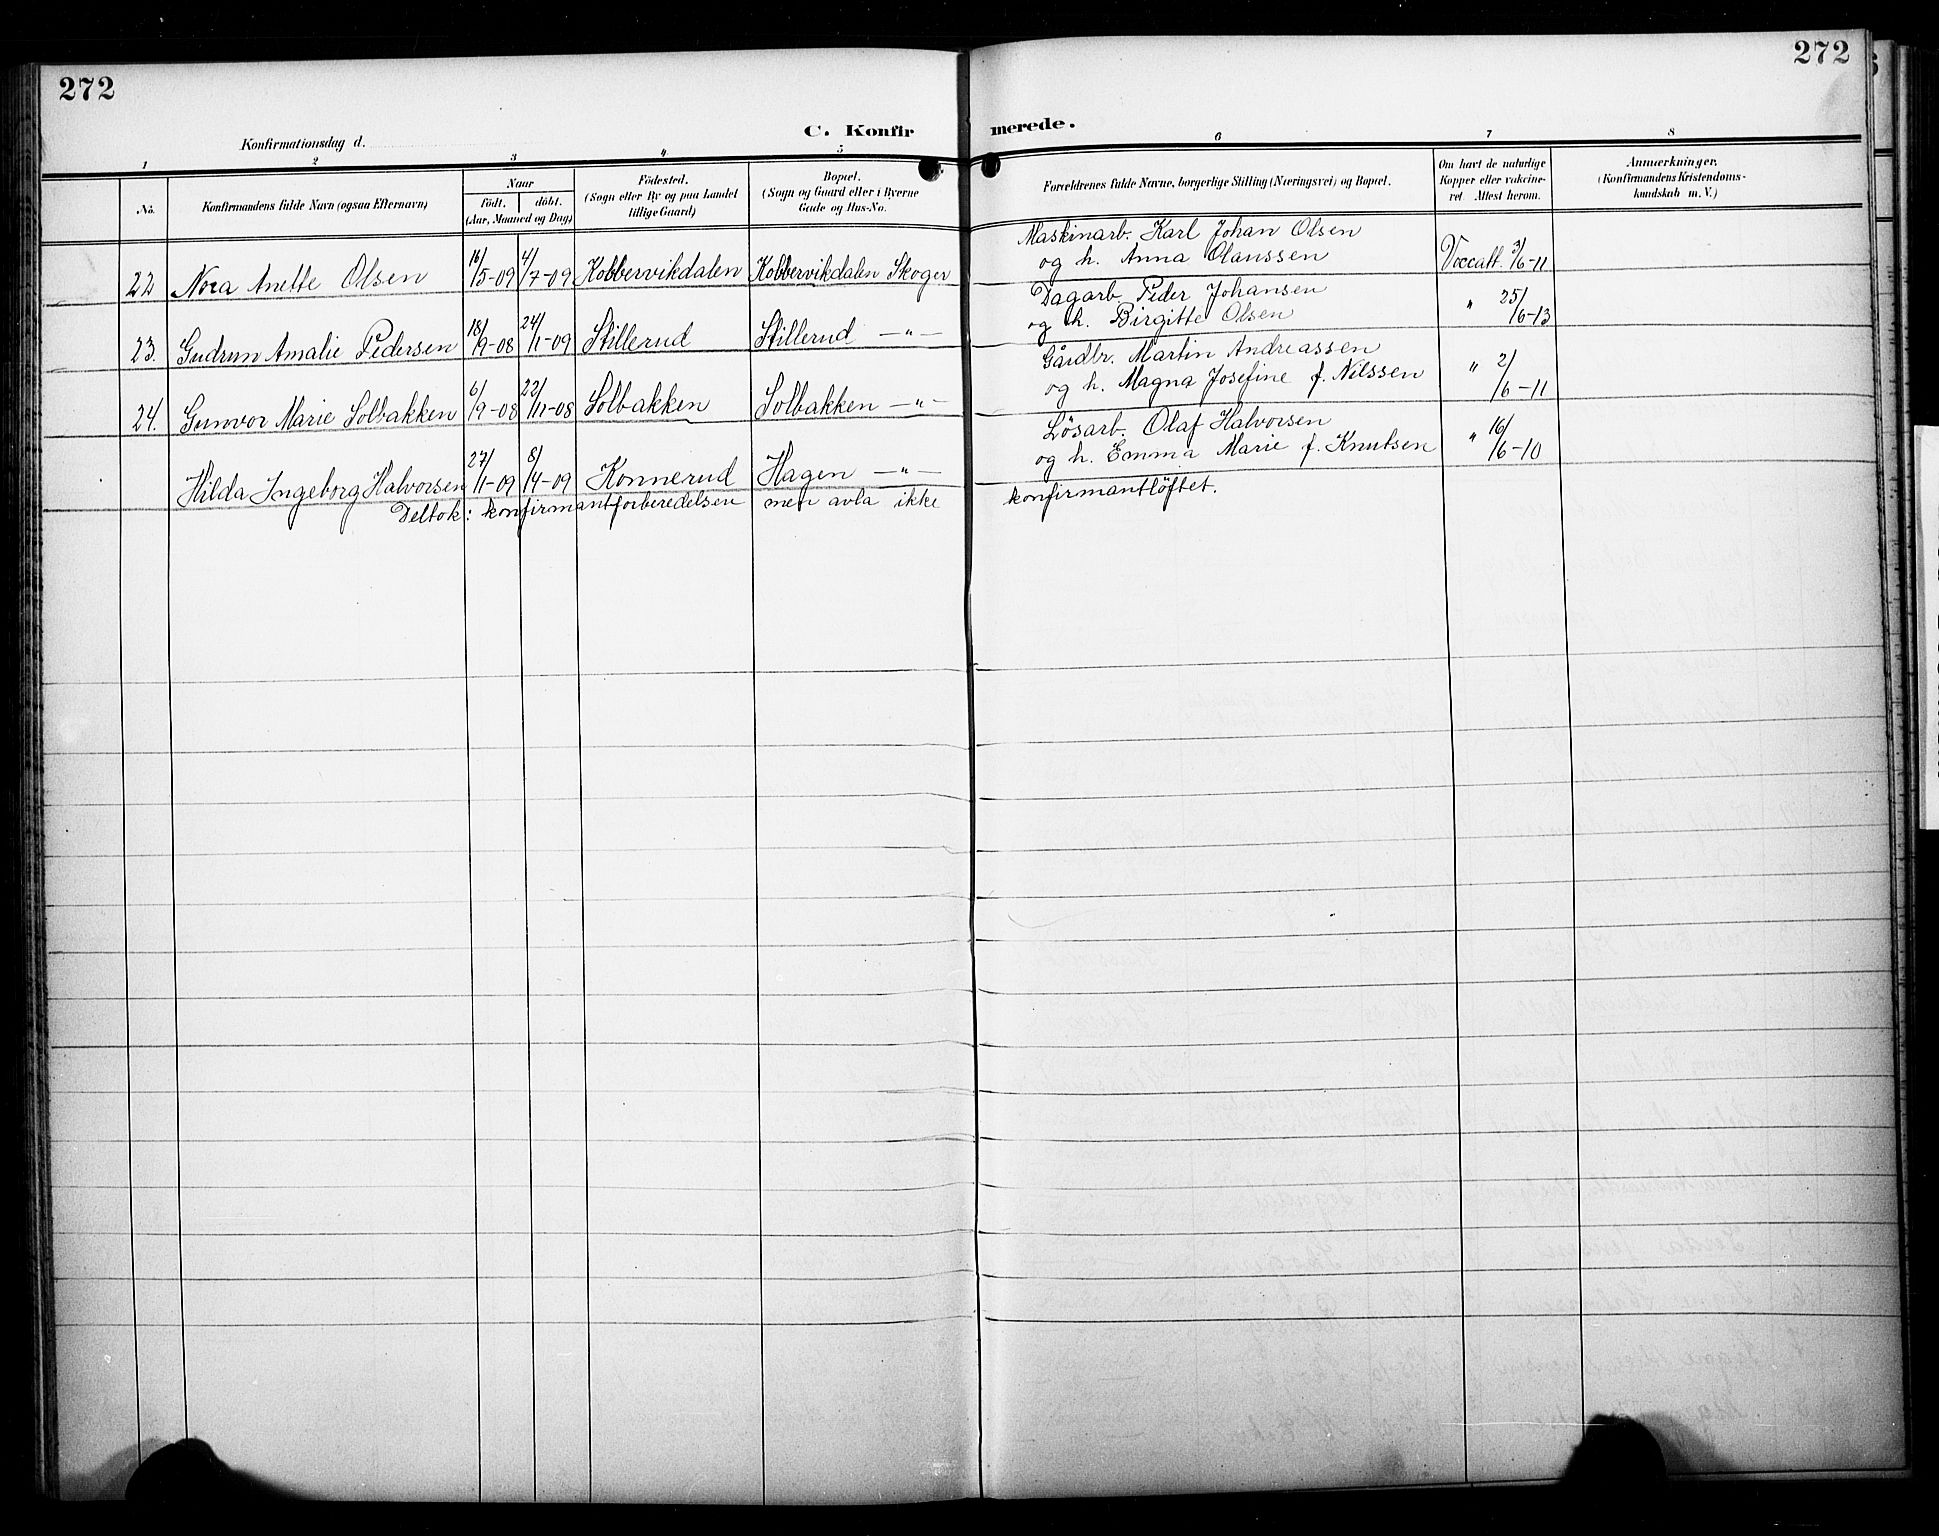 272
272
C. Konfirmerede.
Konfirmationsdag d.
1 2 3 4 5 6 7 8
No.
Konfirmandens fulde Navn (ogsaa Efternavn)
Naar
födt. döbt.
(Aar, Maaned og Dag)
Födested.
(Sogn eller By og paa Landet
tillige Gaard)
Bopæl.
(Sogn og Gaard eller i Byerne
Gade og Hus-No.
Forældrenes fulde Navne, borgerlige Stilling (Næringsvei) og Bopæl.
Om havt de naturlige
Kopper eller vakcine-
ret. Attest herom.
Anmærkninger,
(Konfirmandens Kristendoms-
kundskab m. V.)
Maskinarb. Karl Johan Olsen
22 Nora Anette Olsen 16/5-09 4/7-09 Kobbervikdalen Kobbervikdalen Skoger og h. Anna Olaussen Vaccatt. 3/6-11
Dagarb. Peder Johansen
23. Gudrun Amalie Pedersen 18/9-08 24/1-09 Stillerud Stillerud —"— og h. Birgitte Olsen " 25/6-13
Gårdbr. Martin Andreassen
24. Gunvor Marie Solbakken 6/9-08 22/11-08 Solbakken Solbakken —"— og h. Magna Josefine f. Nilssen " 2/6-11
Lösarb. Olaf Halvorsen
Hilda Ingeborg Halvorsen 27/1-09 8/4-09 Konnerud Hagen —"— og h. Emma Marie f. Knutsen " 16/6-10
Deltok: konfirmantforberedelsen men avla ikke konfirmantlöftet.